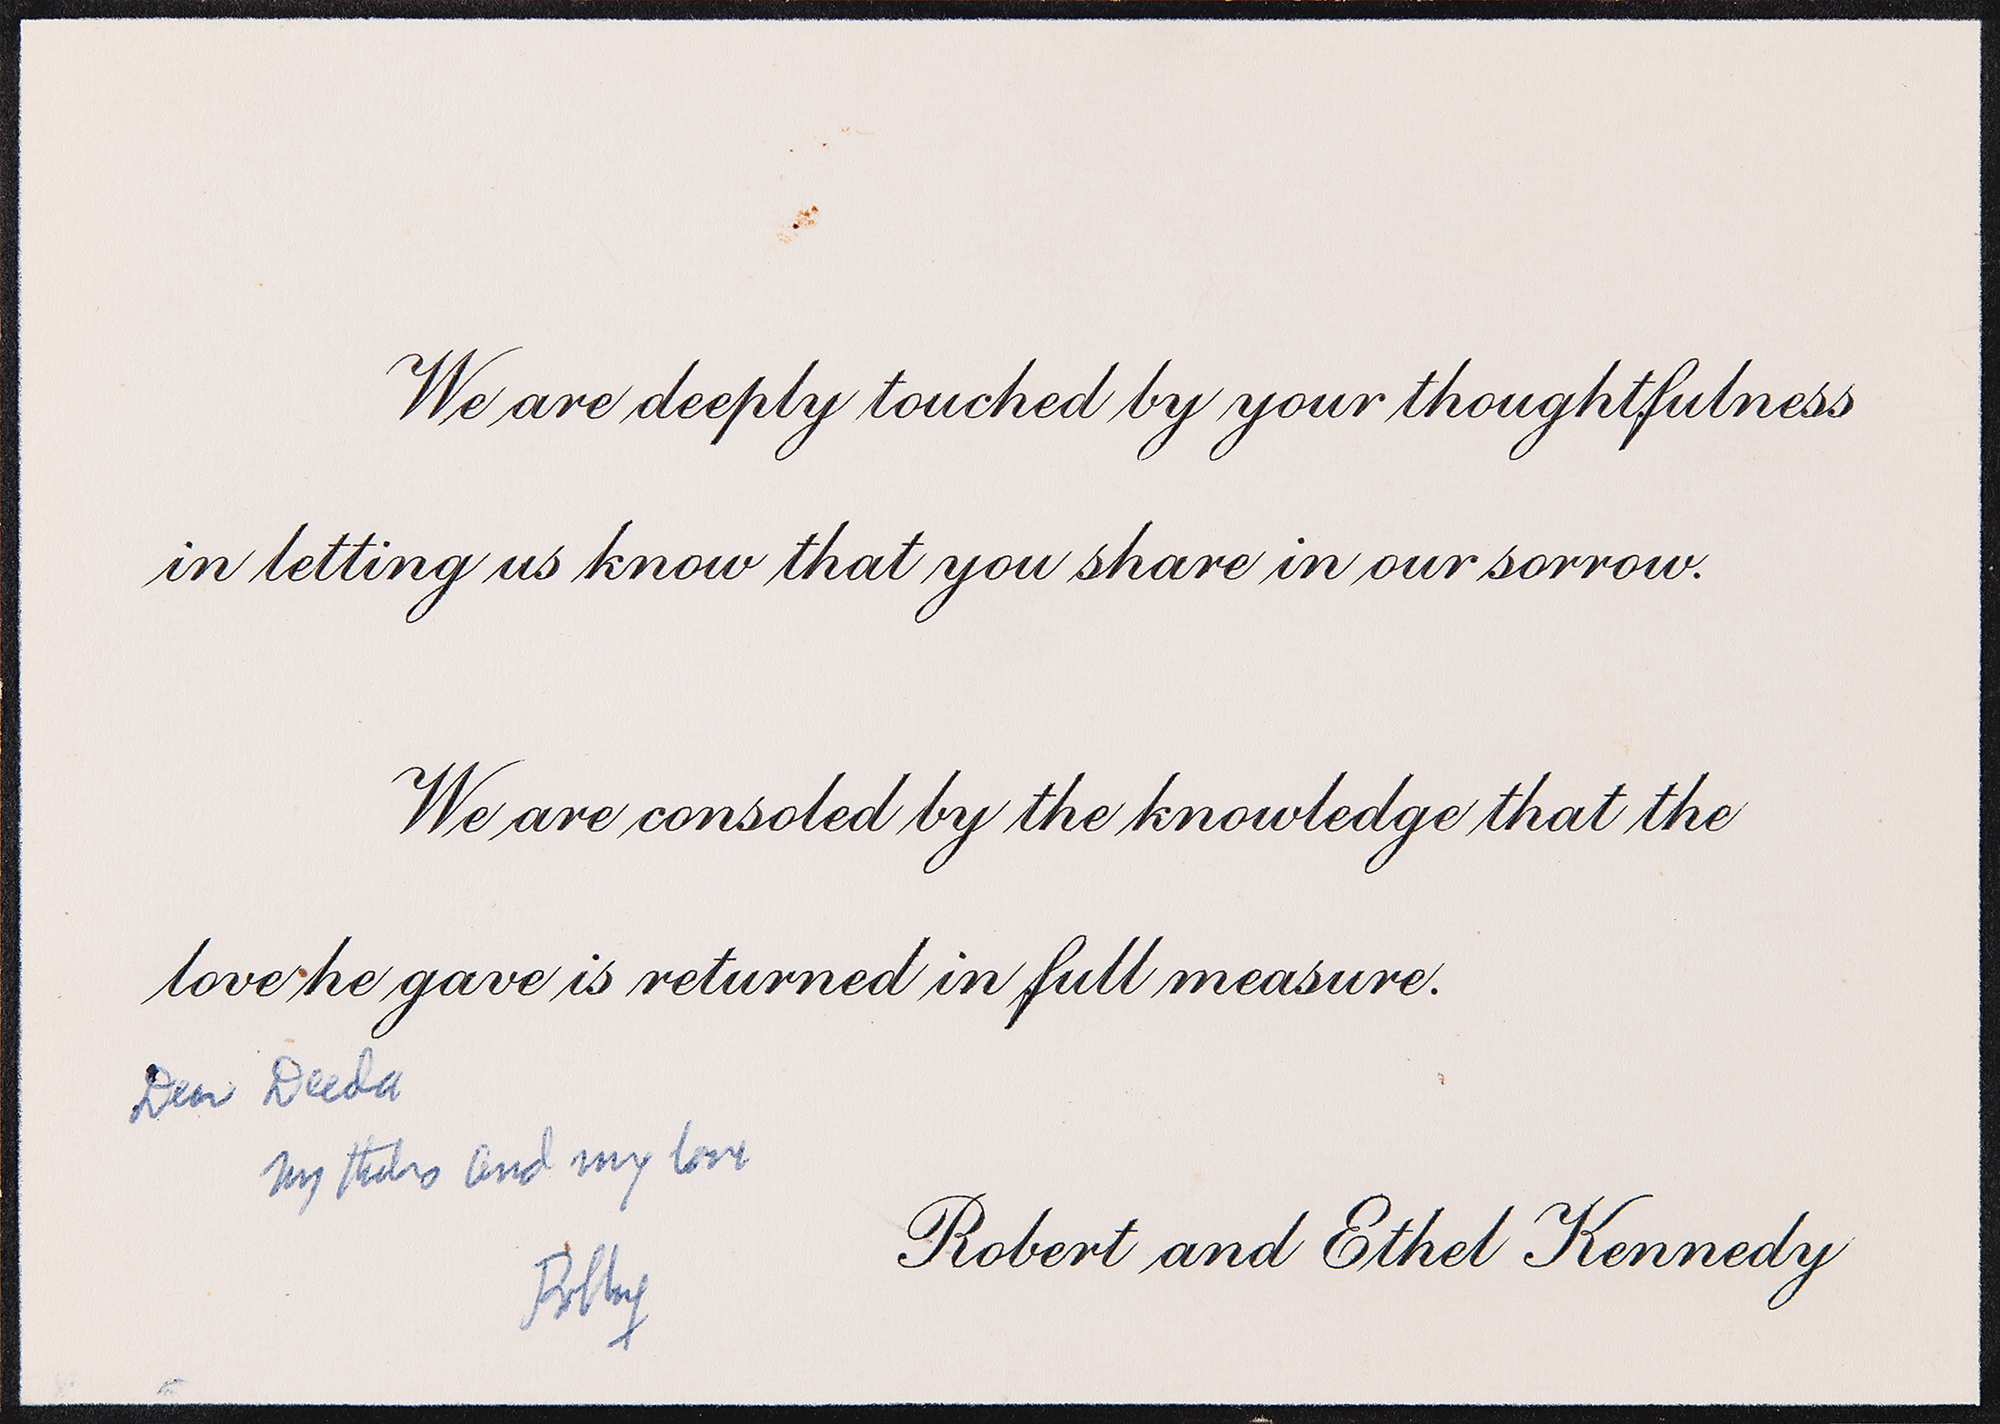 We are deeply touched by your thoughtfulness
in letting us know that you share in our sorrow.
We are consoled by the knowledge that the
love he gave is returned in full measure.
Dear Deeda
my thks and my love
Bobby
Robert and Ethel Kennedy